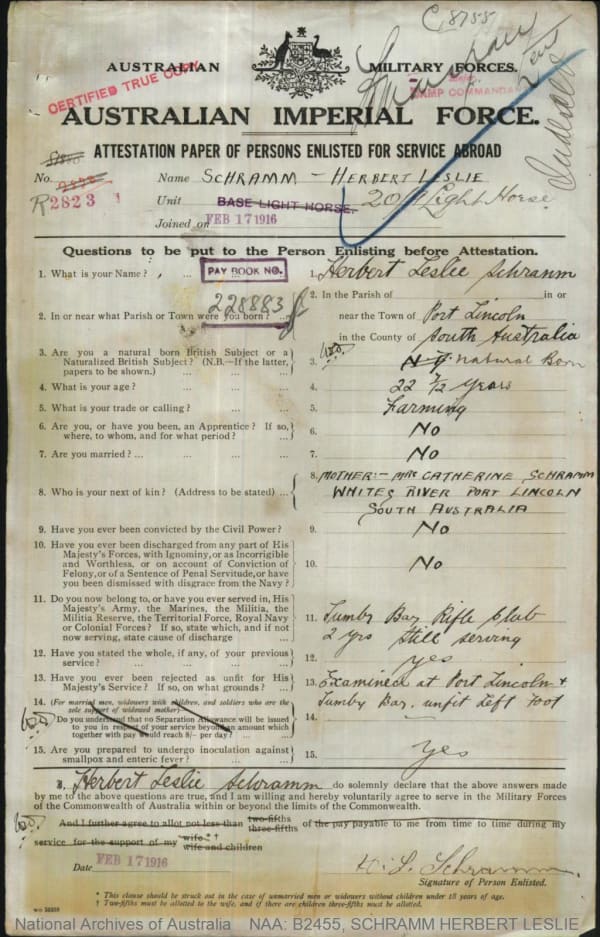 C 8755
AUSTRALIAN MILITARY FORCES.
CERTIFIED TRUE COPY
CAMP COMMANDANT
AUSTRALIAN IMPERIAL FORCE.
ATTESTATION PAPER OF PERSONS ENLISTED FOR SERVICE ABROAD
No. R2823 Name SCHRAMM - HERBERT LESLIE
Unit BASE LIGHT HORSE. 20/9 Light Horse
Joined on FEB 17 1916
Questions to be put to the Person Enlisting before Attestation.
PAY BOOK NO.
228883
1. What is your Name? ... 1. Herbert Leslie Schramm
2. In or near what Parish or Town were you born? ... 2. In the Parish of in or
near the Town of Port Lincoln
in the County of South Australia
3. Are you a natural born British Subject or a
Naturalized British Subject? (N.B.—If the latter,
papers to be shown.) 3. Natural Born
4. What is your age? ... 4. 22 7/12 years
5. What is your trade or calling? ... 5. Farming
6. Are you, or have you been, an Apprentice? If so,
where, to whom, and for what period? ... 6. No
7. Are you married? ... 7. No
8. Who is your next of kin? (Address to be stated) ... 8. MOTHER:- MRS CATHERINE SCHRAMM
WHITES RIVER PORT LINCOLN
SOUTH AUSTRALIA
9. Have you ever been convicted by the Civil Power? 9. No
10. Have you ever been discharged from any part of His
Majesty's Forces, with Ignominy, or as Incorrigible
and Worthless, or on account of Conviction of
Felony, or of a Sentence of Penal Servitude, or have
you been dismissed with disgrace from the Navy? 10. No
11. Do you now belong to, or have you ever served in, His
Majesty's Army, the Marines, the Militia, the
Militia Reserve, the Territorial Force, Royal Navy
or Colonial Forces? If so, state which, and if not
now serving, state cause of discharge 11. Tumby Bay Rifle Club
2 yrs Still serving
12. Have you stated the whole, if any, of your previous
service? ... 12. yes
13. Have you ever been rejected as unfit for His
Majesty's Service? If so, on what grounds? 13. Examined at Port Lincoln &
Tumby Bay. unfit Left Foot
14. (For married men, widowers with children, and soldiers who are the
sole support of widowed mother)—
Do you understand that no Separation Allowance will be issued
to you in respect of your service beyond an amount which
together with pay would reach 8/- per day? 14.
15. Are you prepared to undergo inoculation against
smallpox and enteric fever? 15. Yes
I, Herbert Leslie Schramm do solemnly declare that the above answers made
by me to the above questions are true, and I am willing and hereby voluntarily agree to serve in the Military Forces
of the Commonwealth of Australia within or beyond the limits of the Commonwealth.
And I further agree to allot not less than two-fifths three-fifths of the pay payable to me from time to time during my
service for the support of my wife*† wife and children
Date FEB 17 1916 H. L. Schramm.
Signature of Person Enlisted.
* This clause should be struck out in the case of unmarried men or widowers without children under 18 years of age.
† Two-fifths must be allotted to the wife, and if there are children three-fifths must be allotted.
National Archives of Australia NAA: B2455, SCHRAMM HERBERT LESLIE